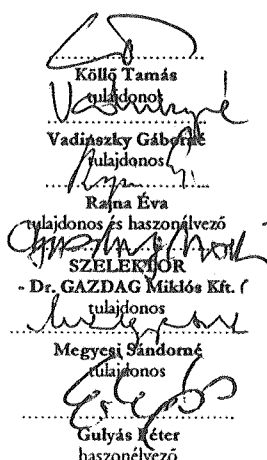 Köllő Tamás
tulajdonos
Vadinszky Gáborné
tulajdonos
Rajna Éva
tulajdonos és haszonélvező
SZELEKTOR
- Dr. GAZDAG Miklós Kft. (
tulajdonos
Megyesi Sándorné
tulajdonos
Gulyás Péter
haszonélvező